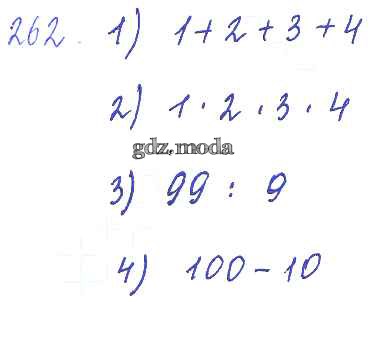 262. 1) 1+2+3+4
2) 1·2·3·4
gdz.moda
3) 99 : 9
4) 100-10